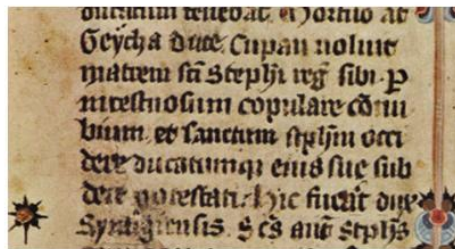 ducatum tenebat. Mortuo at
Geycha duce. Cupan uoluit
matrem sci Stephi reg sibi. p
incestuosum copulare conu
bium. et sanctum stephm occi
dere ducatumqz eius sue sub
dere potestati. hic fuerat dux
Symigiensis. Scs aut stephs